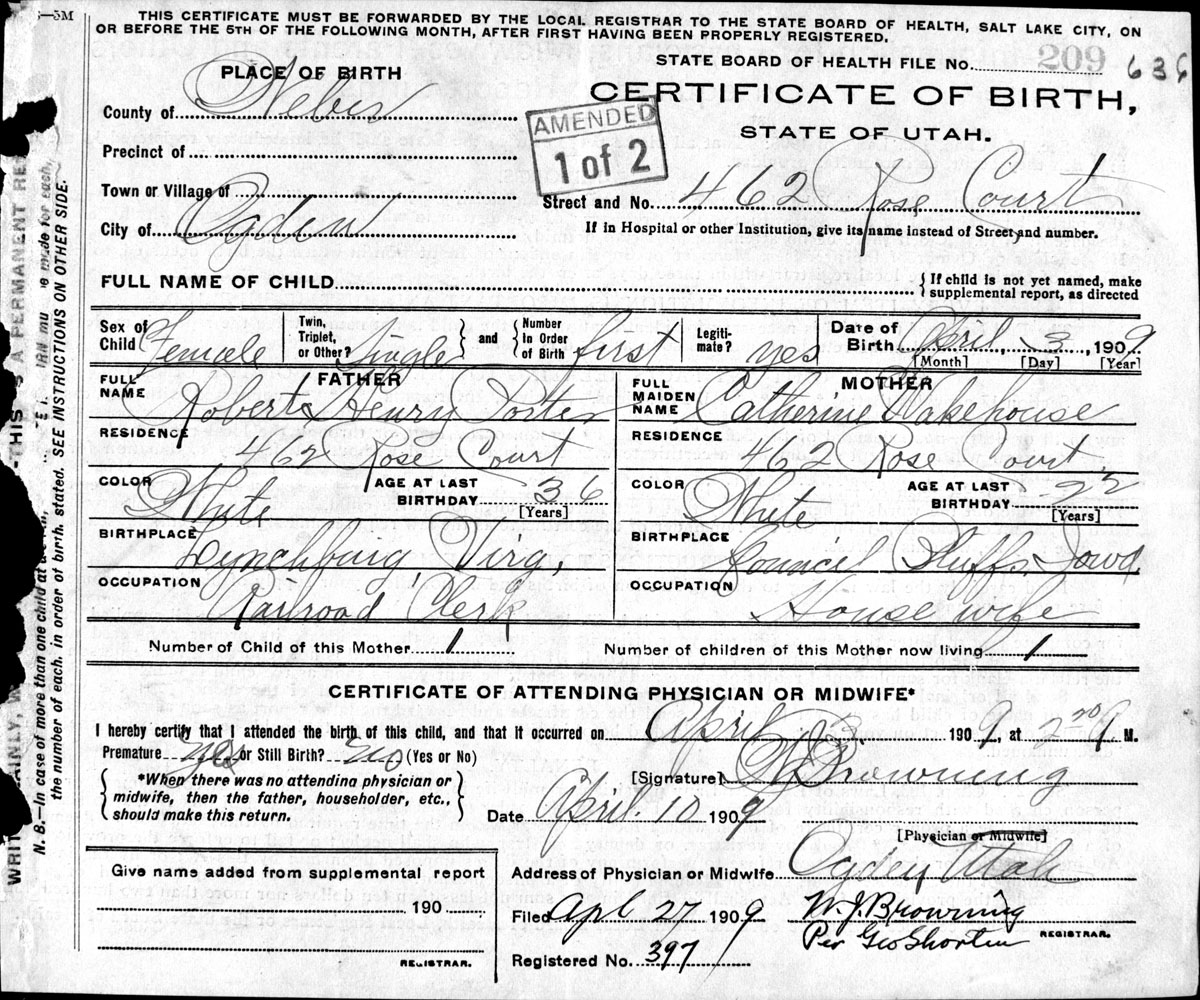 3—5M
THIS CERTIFICATE MUST BE FORWARDED BY THE LOCAL REGISTRAR TO THE STATE BOARD OF HEALTH, SALT LAKE CITY, ON
OR BEFORE THE 5TH OF THE FOLLOWING MONTH, AFTER FIRST HAVING BEEN PROPERLY REGISTERED.
STATE BOARD OF HEALTH FILE No. 209 636
PLACE OF BIRTH
CERTIFICATE OF BIRTH,
STATE OF UTAH.
AMENDED
1 of 2
County of Weber
Precinct of
Town or Village of
City of Ogden
Street and No. 462 Rose Court
If in Hospital or other Institution, give its name instead of Street and number.
FULL NAME OF CHILD
{ If child is not yet named, make
supplemental report, as directed
Sex of Child Female
Twin, Triplet, or Other? Single } and { Number In Order of Birth first
Legitimate? yes
Date of Birth April 3, 1909
[Month] [Day] [Year]
FATHER
FULL NAME Robert Henry Porter
RESIDENCE 462 Rose Court
COLOR White
AGE AT LAST BIRTHDAY 36
[Years]
BIRTHPLACE Lynchburg Virg.
OCCUPATION Railroad Clerk
MOTHER
FULL MAIDEN NAME Catherine Wakehouse
RESIDENCE 462 Rose Court
COLOR White
AGE AT LAST BIRTHDAY 22
[Years]
BIRTHPLACE Council Bluffs Iowa
OCCUPATION House wife
Number of Child of this Mother 1
Number of children of this Mother now living 1
CERTIFICATE OF ATTENDING PHYSICIAN OR MIDWIFE*
I hereby certify that I attended the birth of this child, and that it occurred on April 3 1909, at 2 M.
Premature or Still Birth? no (Yes or No)
{ *When there was no attending physician or
midwife, then the father, householder, etc.,
should make this return. }
[Signature] Browning
Date April 10 1909
[Physician or Midwife]
Address of Physician or Midwife Ogden, Utah
Give name added from supplemental report
190
REGISTRAR.
Filed Apl 27 1909
W. J. Browning
Per Geo Shorten
REGISTRAR.
Registered No. 397
WRITE PLAINLY, —THIS IS A PERMANENT RE
N. B.—In case of more than one child at made for each,
the number of each, in order of birth, stated. SEE INSTRUCTIONS ON OTHER SIDE.